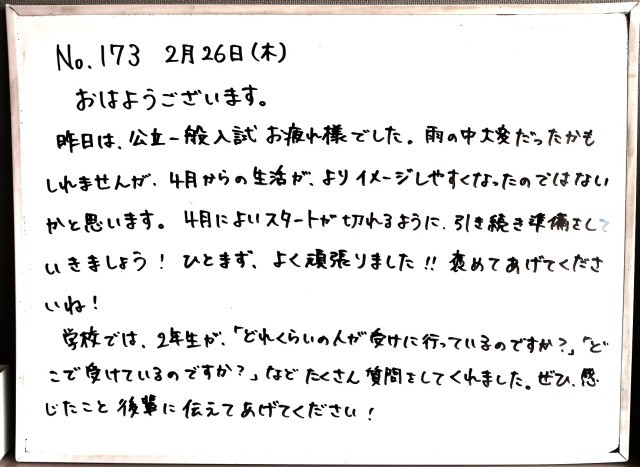 No.173 2月26日(木)
おはようございます。
昨日は、公立一般入試お疲れ様でした。雨の中大変だったかも
しれませんが、4月からの生活が、よりイメージしやすくなったのではない
かと思います。4月によいスタートが切れるように、引き続き準備をして
いきましょう！ひとまず、よく頑張りました!!褒めてあげてくださ
いね！
学校では、2年生が、「どれくらいの人が受けに行っているのですか？」「ど
こで受けているのですか？」などたくさん質問をしてくれました。ぜひ、感
じたこと後輩に伝えてあげてください！